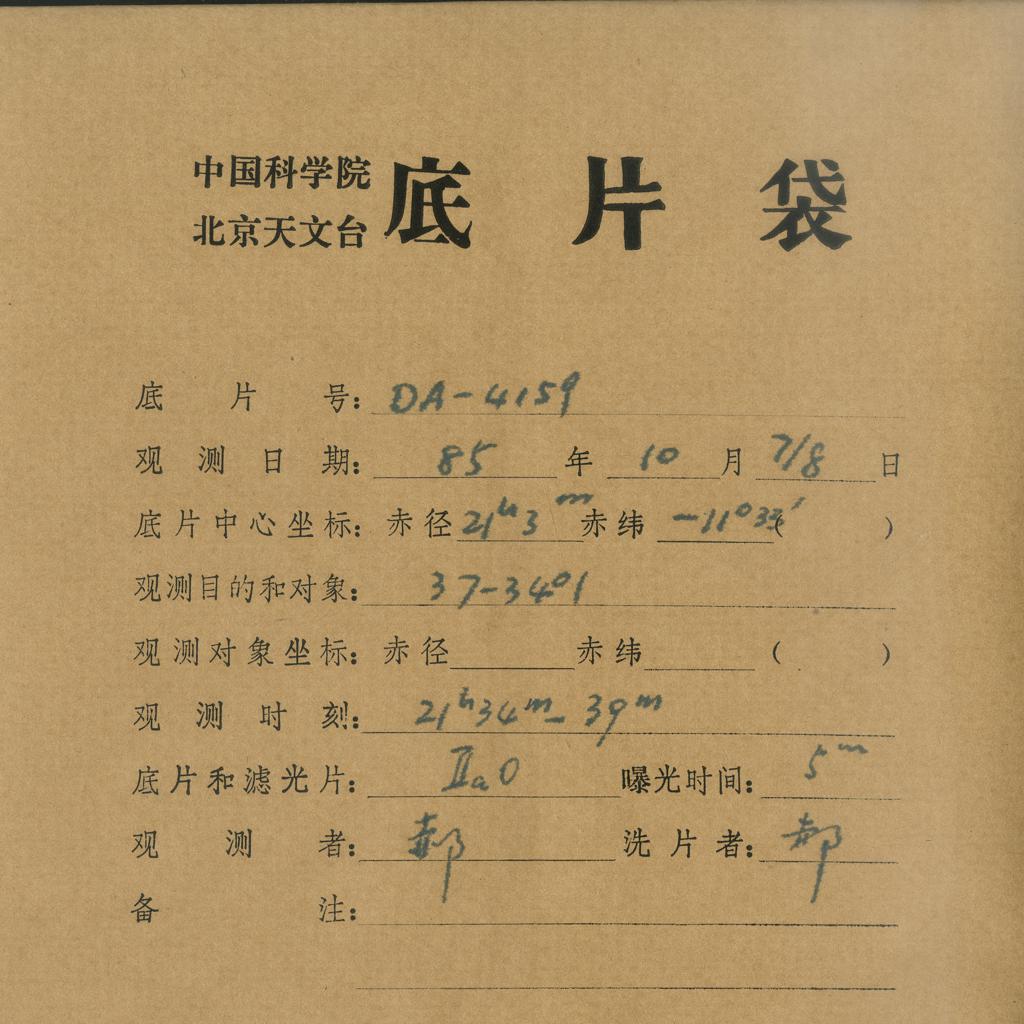 中国科学院
北京天文台
底片袋
底片号: DA-4159
观测日期: 85 年 10 月 7/8 日
底片中心坐标: 赤径 21ʰ3ᵐ 赤纬 -11°33′ ( )
观测目的和对象: 37-3401
观测对象坐标: 赤径 赤纬 ( )
观测时刻: 21ʰ34ᵐ-39ᵐ
底片和滤光片: IIaO 曝光时间: 5ᵐ
观测者: 郝 洗片者: 郝
备注: